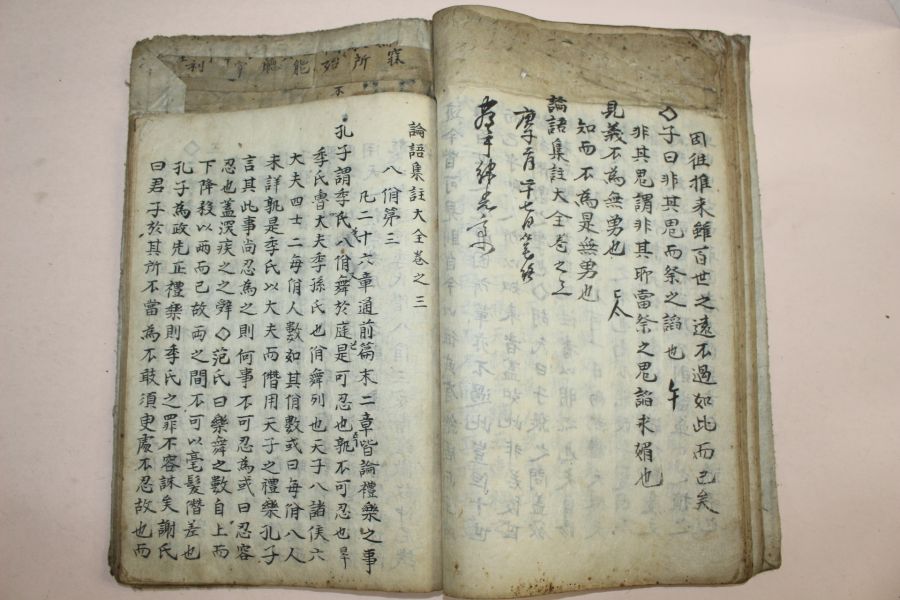 因徃推来雖百世之遠不過如此而已矣
◇子曰非其鬼而祭之謟也
非其鬼謂非其所當祭之鬼謟求媚也
見義不為無勇也
知而不為是無勇也
論語集註大全卷之二
論語集註大全卷之三
八佾第三
凡二十六章通前篇末二章皆論禮樂之事
孔子謂季氏八佾舞於庭是可忍也孰不可忍也
季氏魯大夫季孫氏也佾舞列也天子八諸侯六
大夫四士二每佾人數如其佾數或曰每佾八人
未詳孰是季氏以大夫而僭用天子之禮樂孔子
言其此事尚忍為之則何事不可忍為或曰忍容
忍也盖深疾之之辞◇范氏曰樂舞之數自上而
下降殺以两而已故两之間不可以毫髮僭差也
孔子為政先正禮樂則季氏之罪不容誅矣謝氏
曰君子於其所不當為不敢須臾處不忍故也而